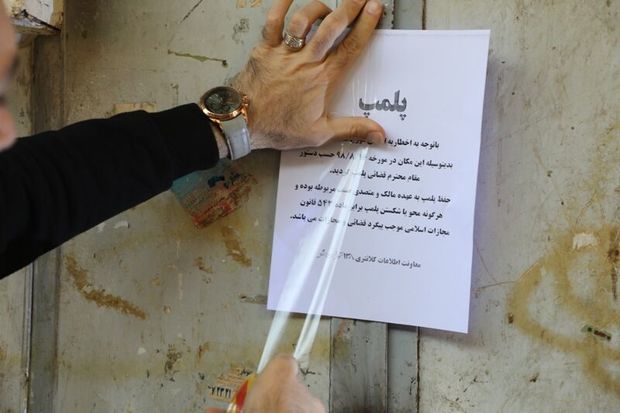 پلمپ
باتوجه به اخطاریه
بدینوسیله این مکان در مورخه ۹۸/۸ حسب دستور
مقام محترم قضائی پلمپ گردید.
حفظ پلمپ به عهده مالک و متصدی مربوطه بوده و
هرگونه محو یا شکستن پلمپ برابر ماده ۵۴۳ قانون
مجازات اسلامی موجب پیگرد قضائی و مجازات می باشد.
معاونت اطلاعات کلانتری